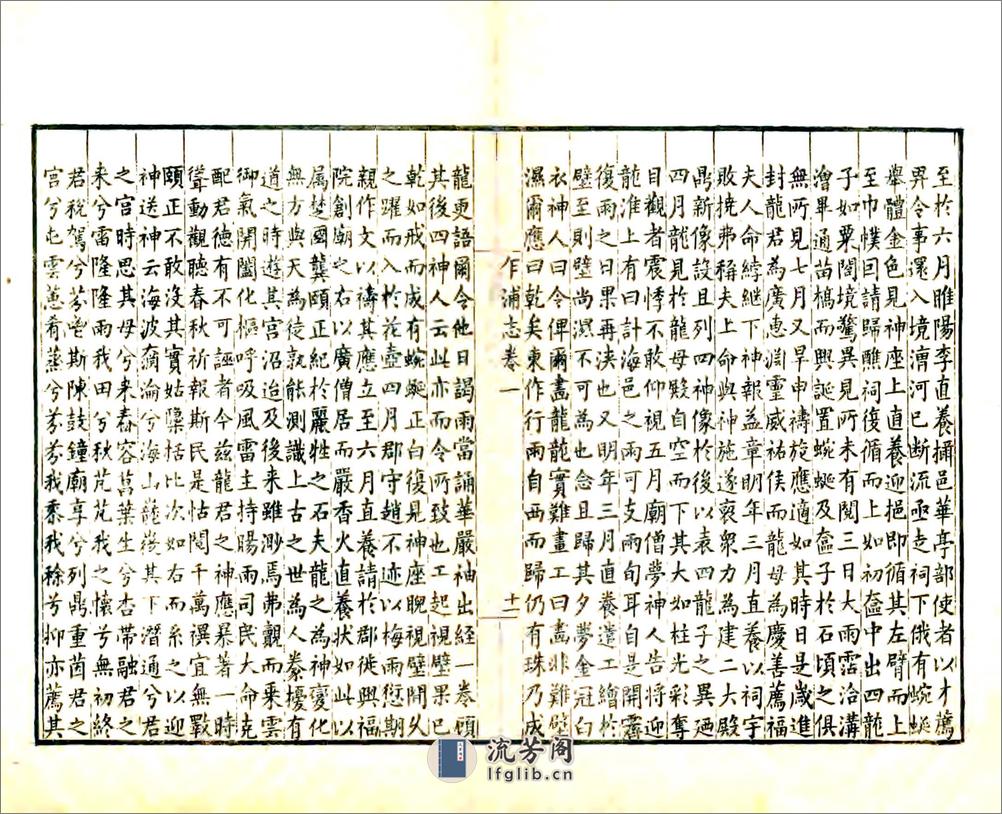 至於六月睢陽李直養攝邑華亭部使者以才薦
畀令事漯入境漕河已斷流亟走祠下俄有蜿蜒
舉體金色見神座上直養迎挹即循其左臂而上
至巾幞回請歸醮祠復循而上如初奩中出四龍
子如粟闔境驚異見所未有閱三日大雨霑洽溝
澮畢通苗槁而興誕置蜿蜒及奩子於石頃之俱
無所見七月又旱申禱旋應適如其時日是歲進
封龍君為廣惠淵靈威祐侯而龍母為慶善薦福
夫人命綍繼下神報益章明年三月直養以祠宇
敗撓弗稱夫上命與神施遂裒衆力為建二大殿
鼎新像設且列四神像於後以表四龍子之異廼
四月龍見於龍母䯻自空而下其大如柱光彩奪
目觀者震悸不敢仰視五月廟僧夢神人告將迎
龍淮上有曰計海邑之雨可支兩旬耳自是開霽
復雨之日果再浹也又明年三月直養遣工繪於
壁至則壁尚濕不可為也念且歸其夕夢金冠白
衣神人曰令俾爾畫龍龍實難畫工曰畫非難壁
濕爾應曰乾矣東作行雨自西而歸仍有珠乃成
乍浦志卷一
十一
龍更語爾令他日謁雨當誦華嚴神出經一卷頋
其後四神人云此亦而令所致也工起視壁果已
乾如戒而成有蜿蜒正白復見神座睨視壁閒久
之躍而入於花壺四月郡守趙不迹以梅雨愆期
親作文以禱其應立至六月直養請於郡徙興福
院創廟之右以廣僧居而嚴香火直養狀如此以
属楚國龔頤正紀於麗牲之石夫龍之為神變化
無方與天為徒孰能測識上古之世為人豢擾有
道之時遊其宮沼迨及後来雖渺焉弗觀而乘雲
御氣開闔化樞呼吸風雷主持暘雨司民大命克
配君德有不可誣者今兹龍君之神應暴著一時
聳動觀聽春秋祈報斯民是怙閱千萬禩宜無斁
頤正不敢没其實姑檃括比次如右而系之以迎
神送神云海波瀰淪兮海山巃嵸其下潛通兮君
之宮時思其母兮来春容菖葉生兮杏帶融君之
来兮雷隆隆雨我田兮秋芃芃我之懷兮無初終
君稅駕兮亳斯陳鼓鐘廟享兮列鼎重茵君之
宮兮屯雲蕙肴蒸兮芬芬我黍我稌兮抑亦薦其
流芳阁
lfglib.cn